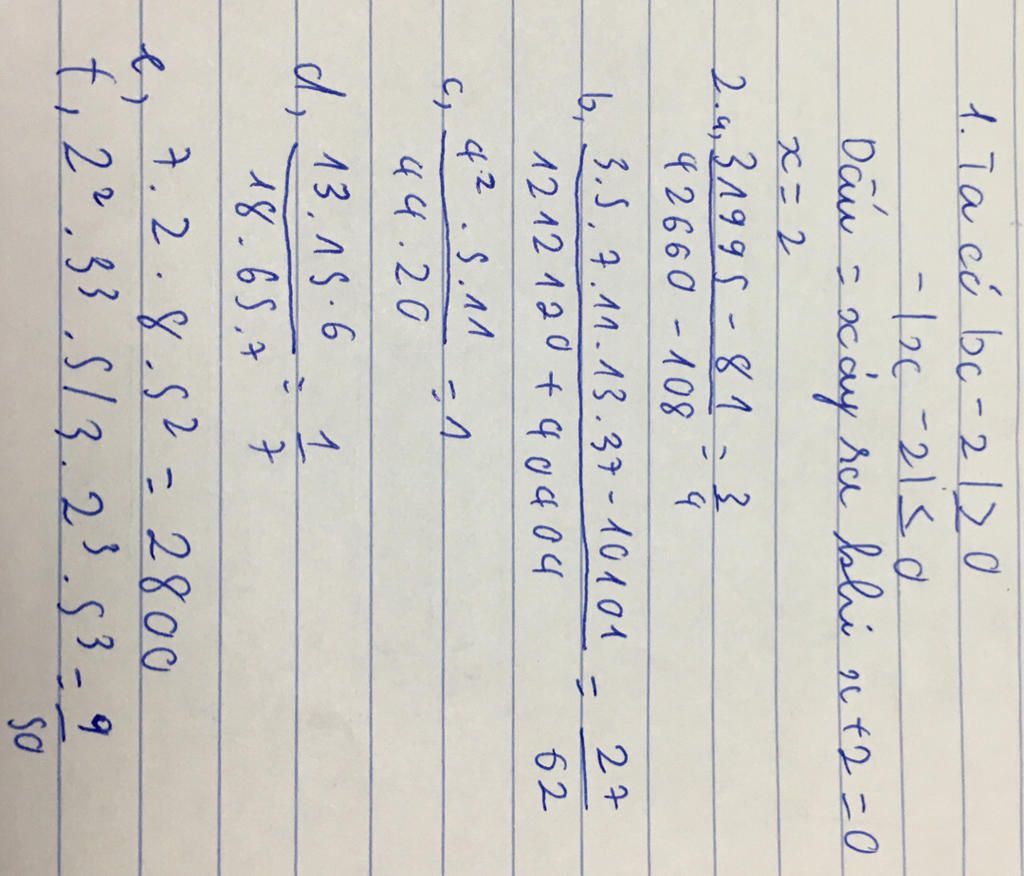 1. Ta có |x - 2| ≥ 0
- |x - 2| ≤ 0
Dấu = xảy ra khi x + 2 = 0
x = 2
2. a, 31995 - 81 / 42660 - 108 = 3/4
b, 3.5.7.11.13.37 - 10101 / 1212120 + 40404 = 27/62
c, 4².5.11 / 44.20 = 1
d, 13.15.6 / 18.65.7 = 1/7
e, 7.2.8.5² = 2800
f, 2².3³.5/3.2³.5³ = 9/50